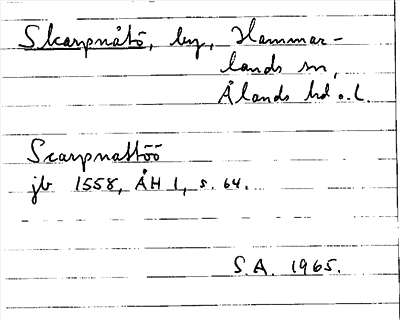 Skarpnåtö, by, Hammar-
lands sn,
Ålands hd o. L.
Scarpnattöö
jb 1558, ÅH 1, s. 64.
S.A. 1965.